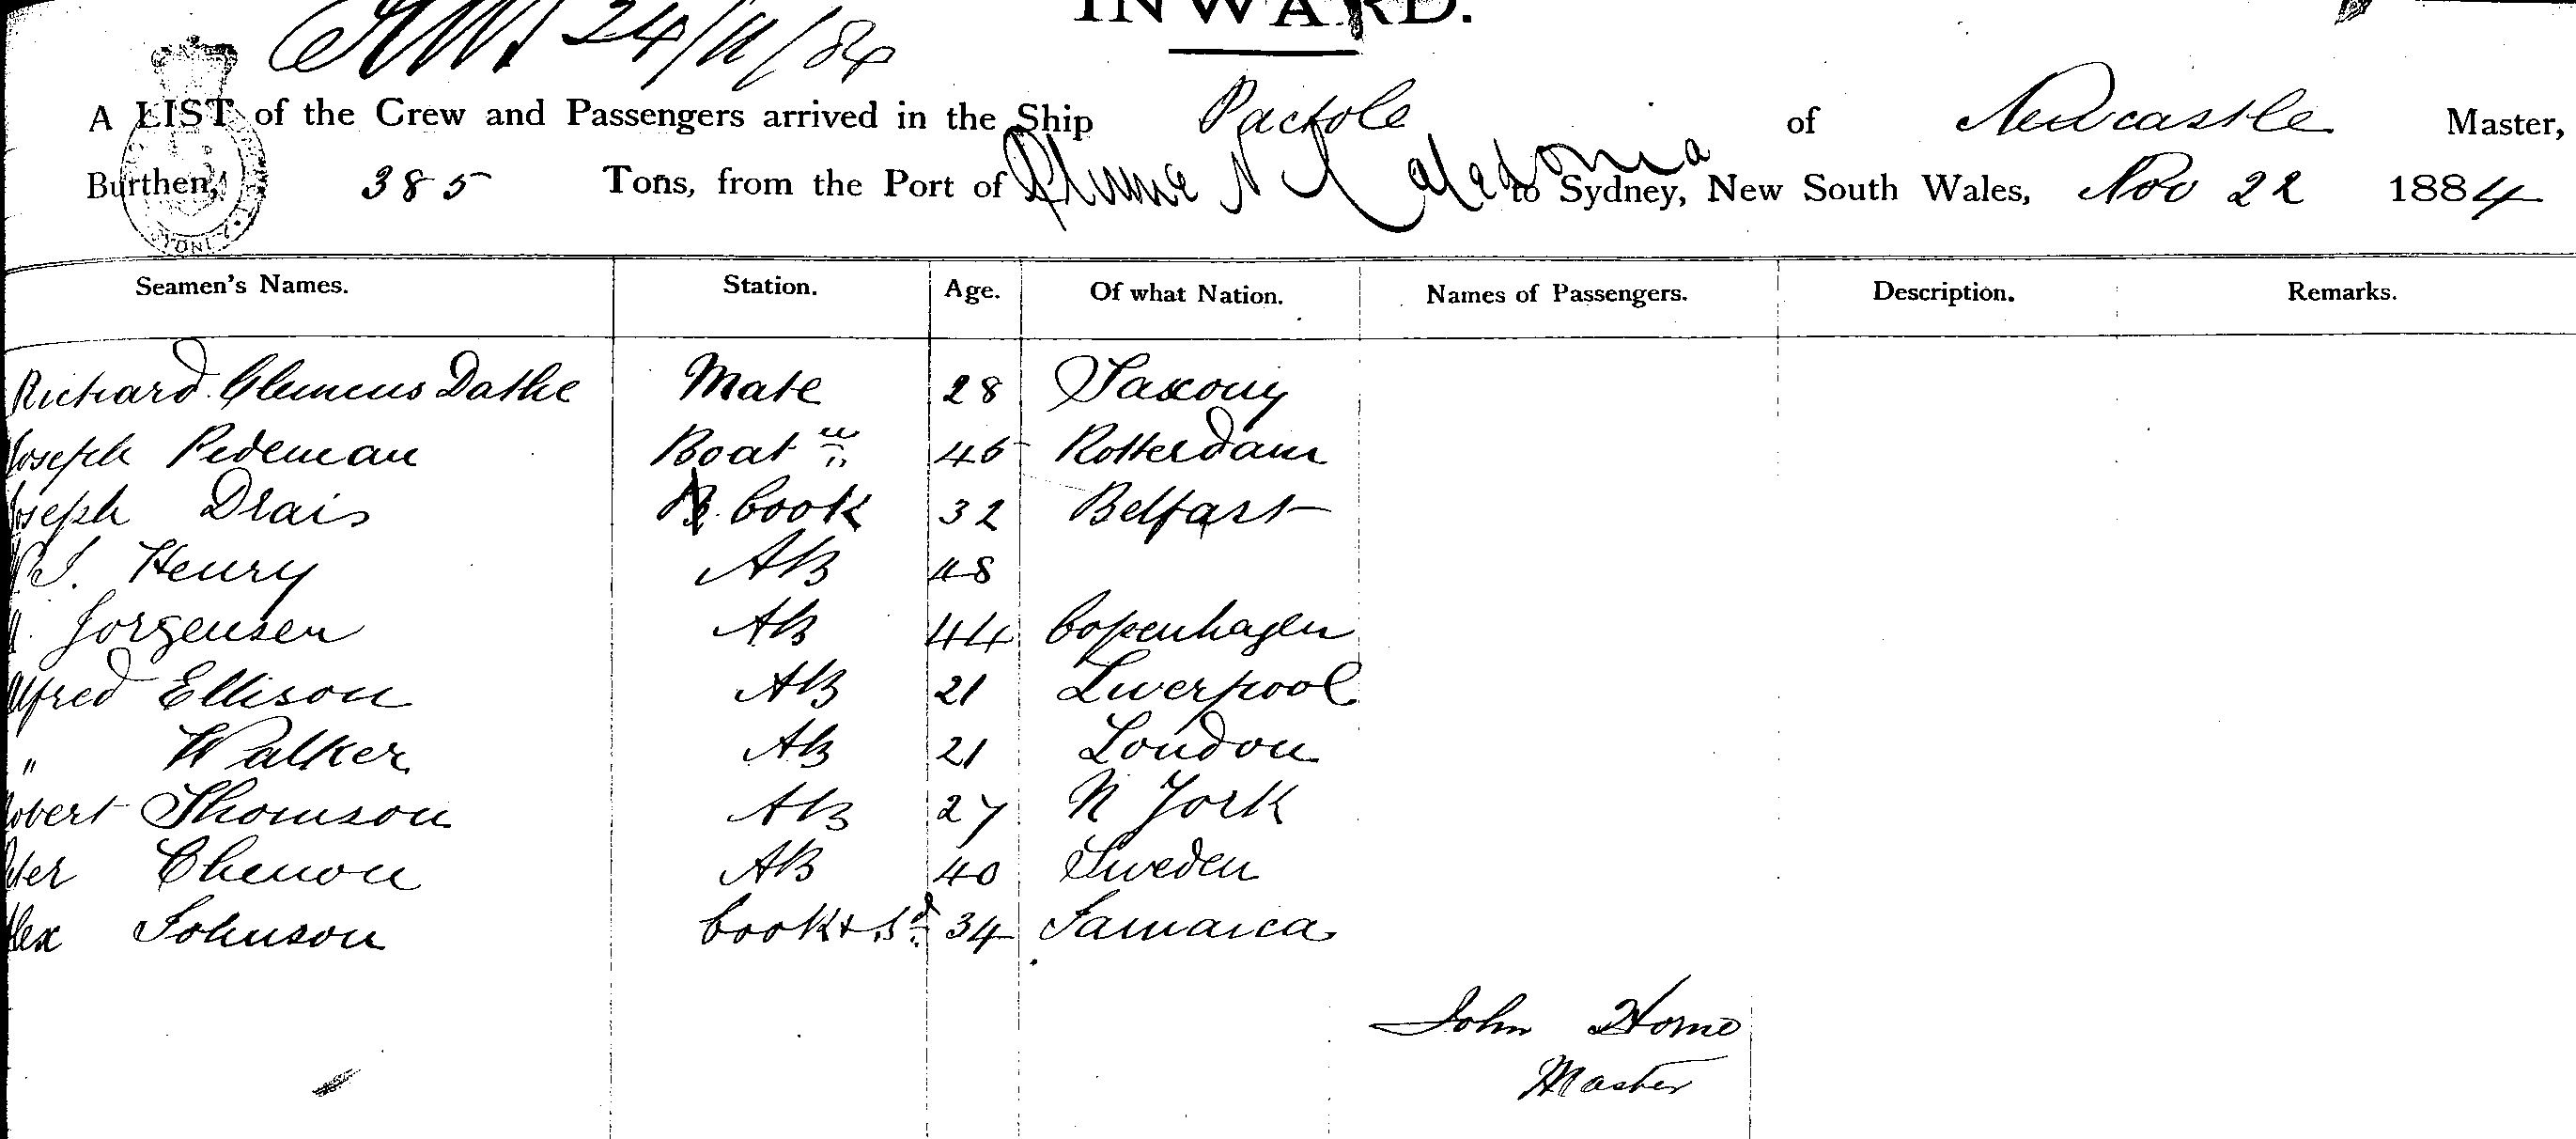 INWARD.
24/11/84
A LIST of the Crew and Passengers arrived in the Ship Pactole of Newcastle Master,
Burthen, 385 Tons, from the Port of N Caledonia to Sydney, New South Wales, Nov 22 1884
Seamen's Names. Station. Age. Of what Nation. Names of Passengers. Description. Remarks.
Richard Clemens Dathe Mate 28 Saxony
Joseph Pedeman Boat 45 Rotterdam
Joseph Drais Cook 32 Belfast
J. Henry AB 48
Jorgensen AB 44 Copenhagen
Alfred Ellison AB 21 Liverpool
" Walker AB 21 London
Robert Thomson AB 27 N York
Peter Chenon AB 40 Sweden
Alex Johnson Cook & Sd 34 Jamaica
John Horne
Master